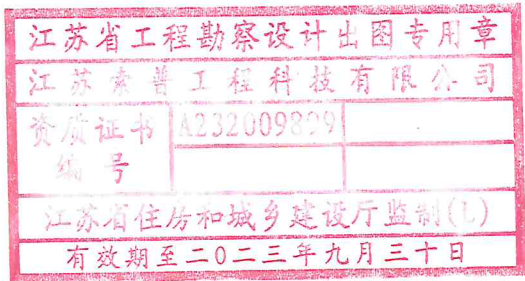 江苏省工程勘察设计出图专用章
江苏索普工程科技有限公司
资质证书
编号
A232009899
江苏省住房和城乡建设厅监制(L)
有效期至二〇二三年九月三十日